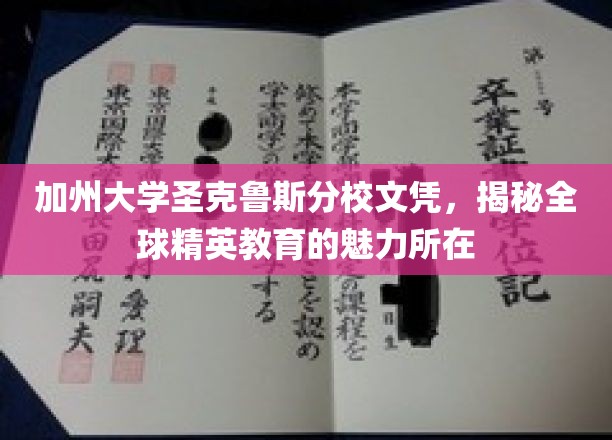 加州大学圣克鲁斯分校文凭，揭秘全
球精英教育的魅力所在
第
号
卒業証
学位記
本学商学部
定の課程を
修めて本学
ことを認め
学士(商学)の
する
平成
東京国際大学
東京国際大学
田尻嗣夫